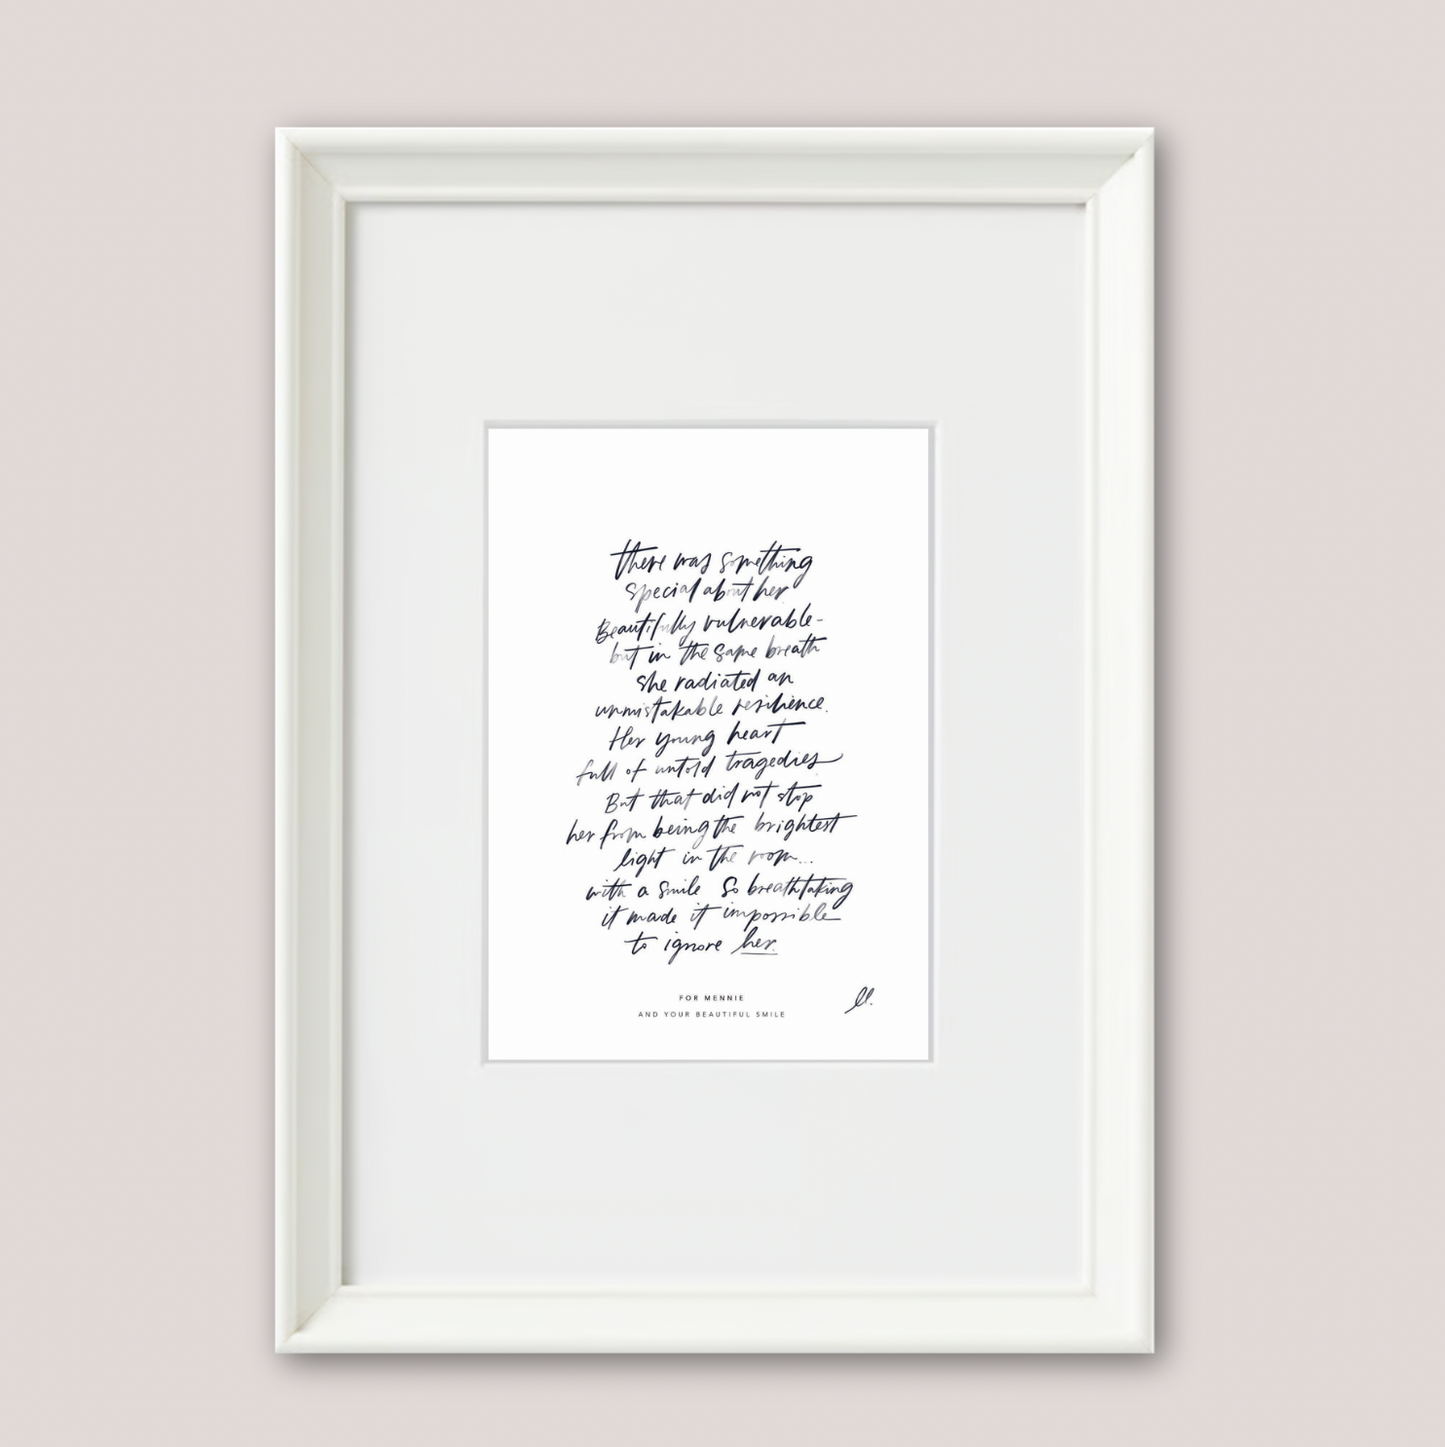 there was something
special about her
Beautifully vulnerable-
but in the same breath
she radiated an
unmistakable resilience.
Her young heart
full of untold tragedies
But that did not stop
her from being the brightest
light in the room...
with a smile so breathtaking
it made it impossible
to ignore her.
FOR MENNIE
AND YOUR BEAUTIFUL SMILE